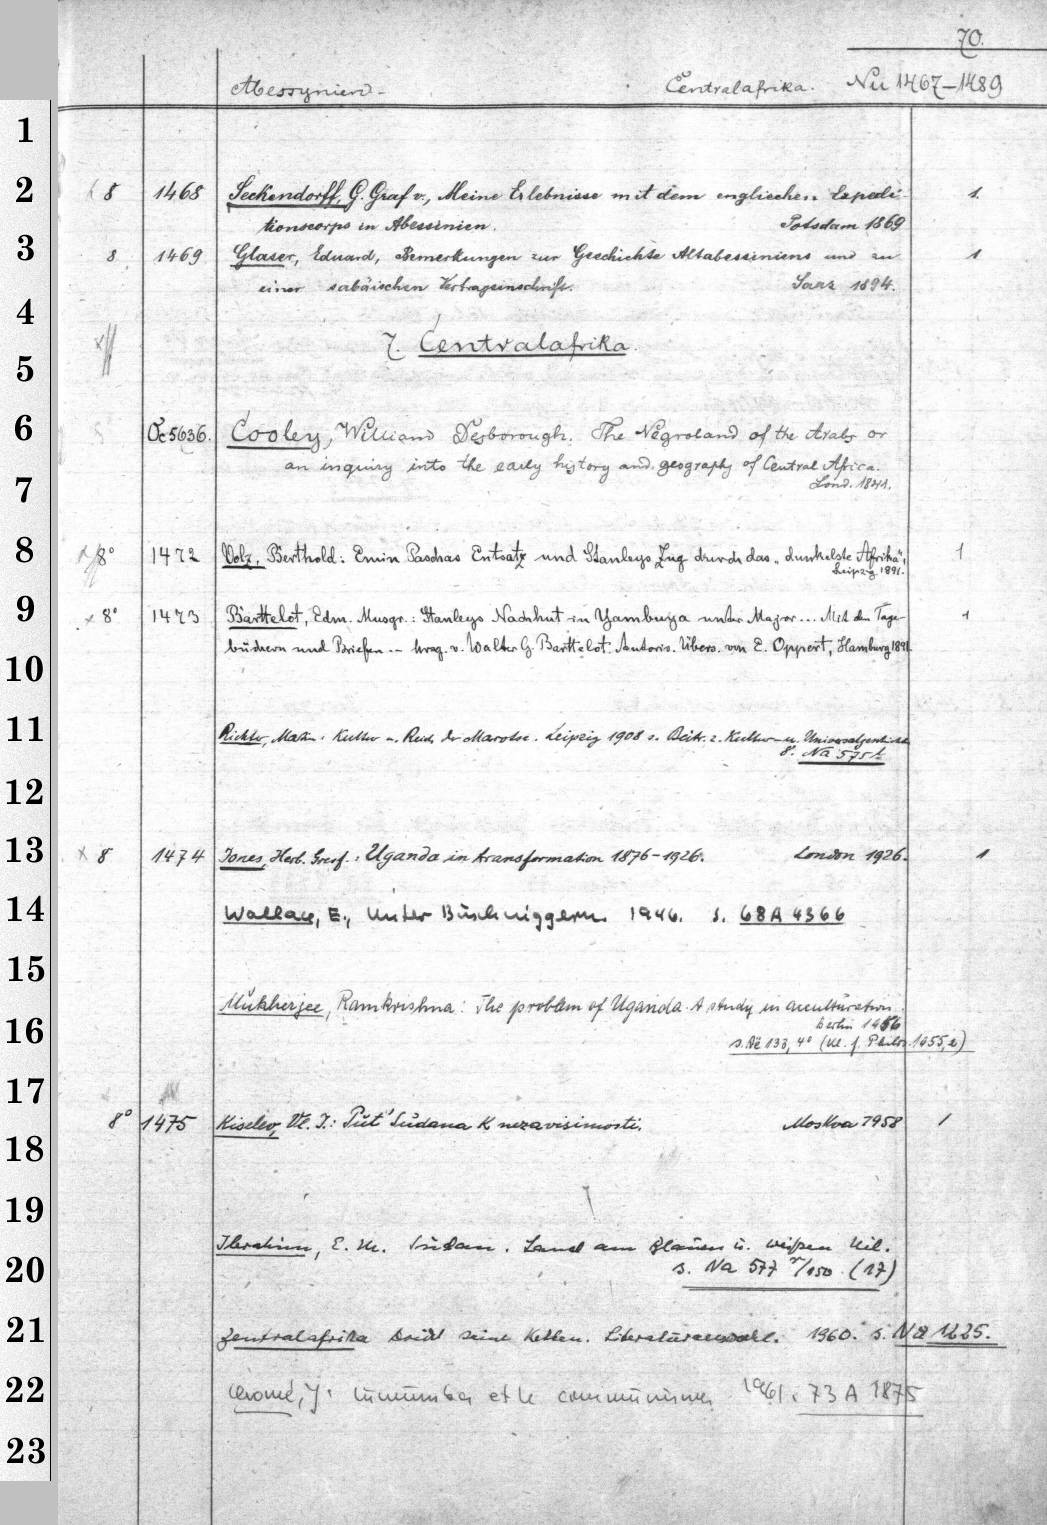 70.
Abessynien - Centralafrika. Nu 1467-1489
1
2 8 1468 Seckendorff, G. Graf v., Meine Erlebnisse mit dem englischen Expedi- 1.
tionscorps in Abessinien. Potsdam 1869
3 8 1469 Glaser, Eduard, Bemerkungen zur Geschichte Altabessiniens und zu 1
einer sabäischen Vertragsinschrift. Saaz 1894.
4
7. Centralafrika.
5
6 Oc 5636. Cooley, William Desborough. The Negroland of the Arabs or
an inquiry into the early history and geography of Central Africa.
7 Lond. 1841.
8 8° 1472 Volz, Berthold: Emin Paschas Entsatz und Stanleys Zug durch das „dunkelste Afrika“, 1
Leipzig 1891.
9 x 8° 1473 Barttelot, Edm. Musgr.: Stanleys Nachhut in Yambuya unter Major ... Mit den Tage- 1
büchern und Briefen -- hrsg. v. Walter G. Barttelot. Autoris. Übers. von E. Oppert, Hamburg 1891.
10
11 Richter, Martin: Kultur u. Reich der Marotse. Leipzig 1908 s. Beitr. z. Kultur- u. Universalgeschichte
8°. Na 575
12
13 x 8 1474 Jones, Herb. Gresf.: Uganda in transformation 1876-1926. London 1926. 1
14 Wallace, E., Unter Buschniggern. 1946. s. 68 A 4366
15
Mukherjee, Ramkrishna: The problem of Uganda. A study in acculturation.
16 Berlin 1956
133, 4° (Kl. f. Philos. 1955,2)
17
8° 1475 Kiselev, Vl. I.: Put' Sudana k nezavisimosti. Moskva 1958 1
18
19
Ibrahim, E. M. Sudan. Land am Blauen u. weißen Nil.
20 s. Na 577 /150 (17)
21 Zentralafrika bricht seine Ketten. Literaturauswahl. 1960. s. Na 1225.
22 Cromé, J: Lumumba et le communisme 1961. 73 A 1875
23